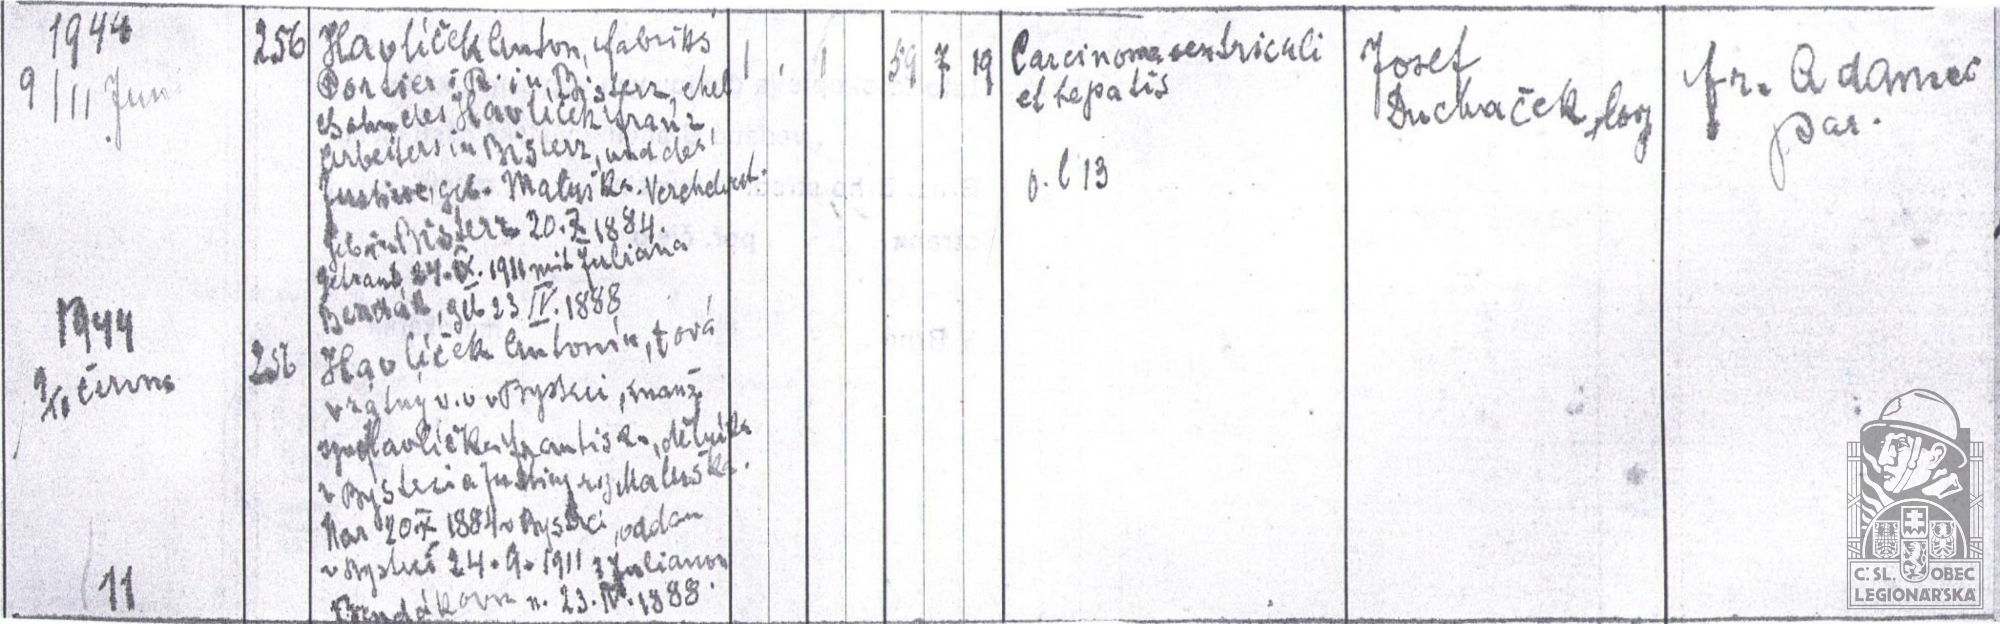 1944
9/11 Juni
256
Havlíček Anton, fabriks
Portier i. R. in Bisterz, ehel
Sohn des Havlíček Franz,
Arbeiters in Bisterz, und der
Justine, geb. Matuška. Verehelicht.
Geb in Bisterz 20. X. 1884.
getraut 24. IX. 1911 mit Juliana
Bendák, geb 23 IV. 1888
1 1 59 7 19
Carcinoma ventriculi
et hepatis
o. l 13
Josef
Duchaček, coop
fr. Adamec
par.
1944
9/11 června
256
Havlíček Antonín, tová
vrátný v. v v Bystrci, manž
syn Havlíčka Františka, dělníka
v Bystrci a Justiny roz Matuška.
Nar 20 X 1884 v Bystrci, oddan
v Bystrci 24. 9. 1911 s Julianou
Bendákovou n. 23. IV. 1888.
11
Č. SL. OBEC
LEGIONÁŘSKÁ